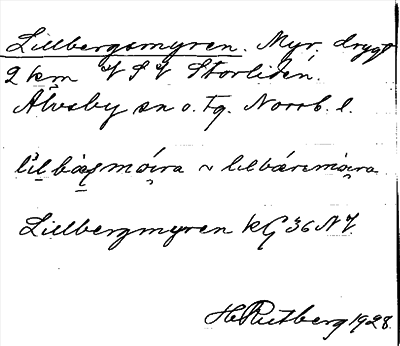 Lillbergsmyren. Myr, drygt
2 km VSV Storliden.
Älvsby sn o. Tg. Norrb. l.
lilbæsmóira ~ lilbáremóira
Lillbergmyren kG 36 NV.
H Rutberg 1928.